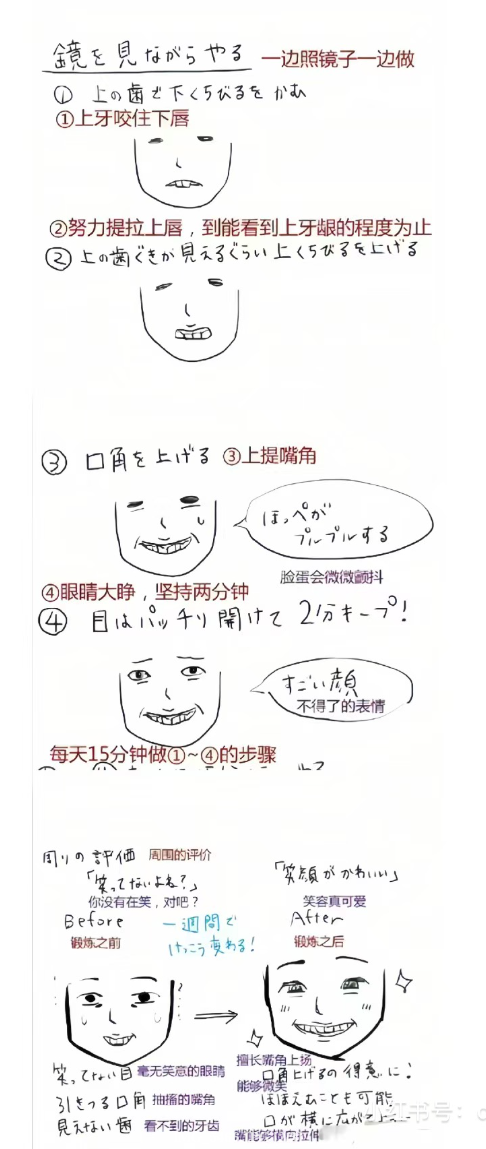 鏡を見ながらやる 一边照镜子一边做
① 上の歯で下くちびるをかむ
①上牙咬住下唇
②努力提拉上唇，到能看到上牙龈的程度为止
② 上の歯ぐきが見えるぐらい上くちびるを上げる
③ 口角を上げる ③上提嘴角
ほっぺが
プルプルする
脸蛋会微微颤抖
④眼睛大睁，坚持两分钟
④ 目はパッチリ開けて 2分キープ！
すごい顔
不得了的表情
每天15分钟做①~④的步骤
周りの評価 周围的评价
「笑ってないよね？」
你没有在笑，对吧？
Before
锻炼之前
一週間で
けっこう変わる！
「笑顔がかわいい」
笑容真可爱
After
锻炼之后
笑ってない目 毫无笑意的眼睛
引きつる口角 抽搐的嘴角
見えない歯 看不到的牙齿
擅长嘴角上扬
口角上げるの得意に！
能够微笑
ほほえむことも可能
口が横に広がって
嘴能够横向拉伸
小红书号：c